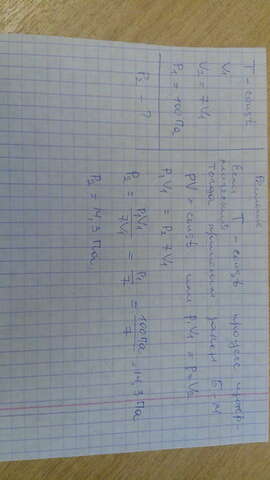 T - const
V₁
V₂ = 7V₁
P₁ = 100 Па
P₂ - ?
Решение
Если T - const процесс изотер
мический
тогда применим закон Б-М
PV = const или P₁V₁ = P₂V₂
P₁V₁ = P₂ 7V₁
P₂ = P₁V₁/7V₁ = P₁/7 = 100 Па/7 = 14,3 Па
P₂ = 14,3 Па